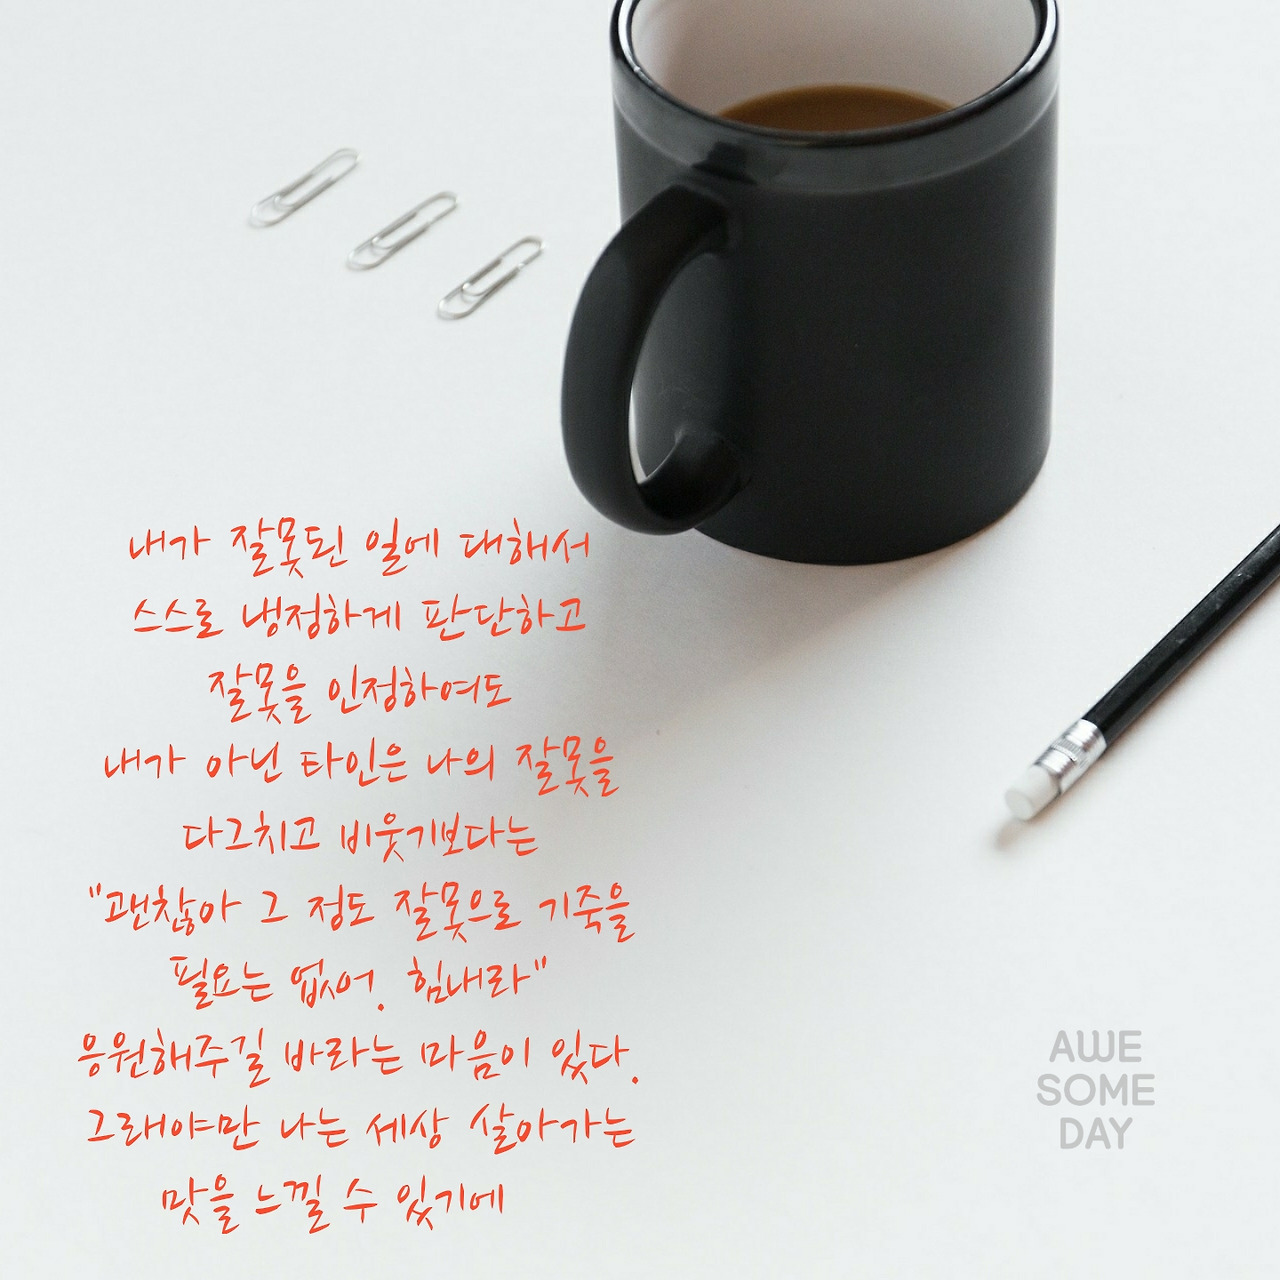 내가 잘못된 일에 대해서
스스로 냉정하게 판단하고
잘못을 인정하여도
내가 아닌 타인은 나의 잘못을
다그치고 비웃기보다는
"괜찮아 그 정도 잘못으로 기죽을
필요는 없어. 힘내라"
응원해주길 바라는 마음이 있다.
그래야만 나는 세상 살아가는
맛을 느낄 수 있기에
AWE
SOME
DAY